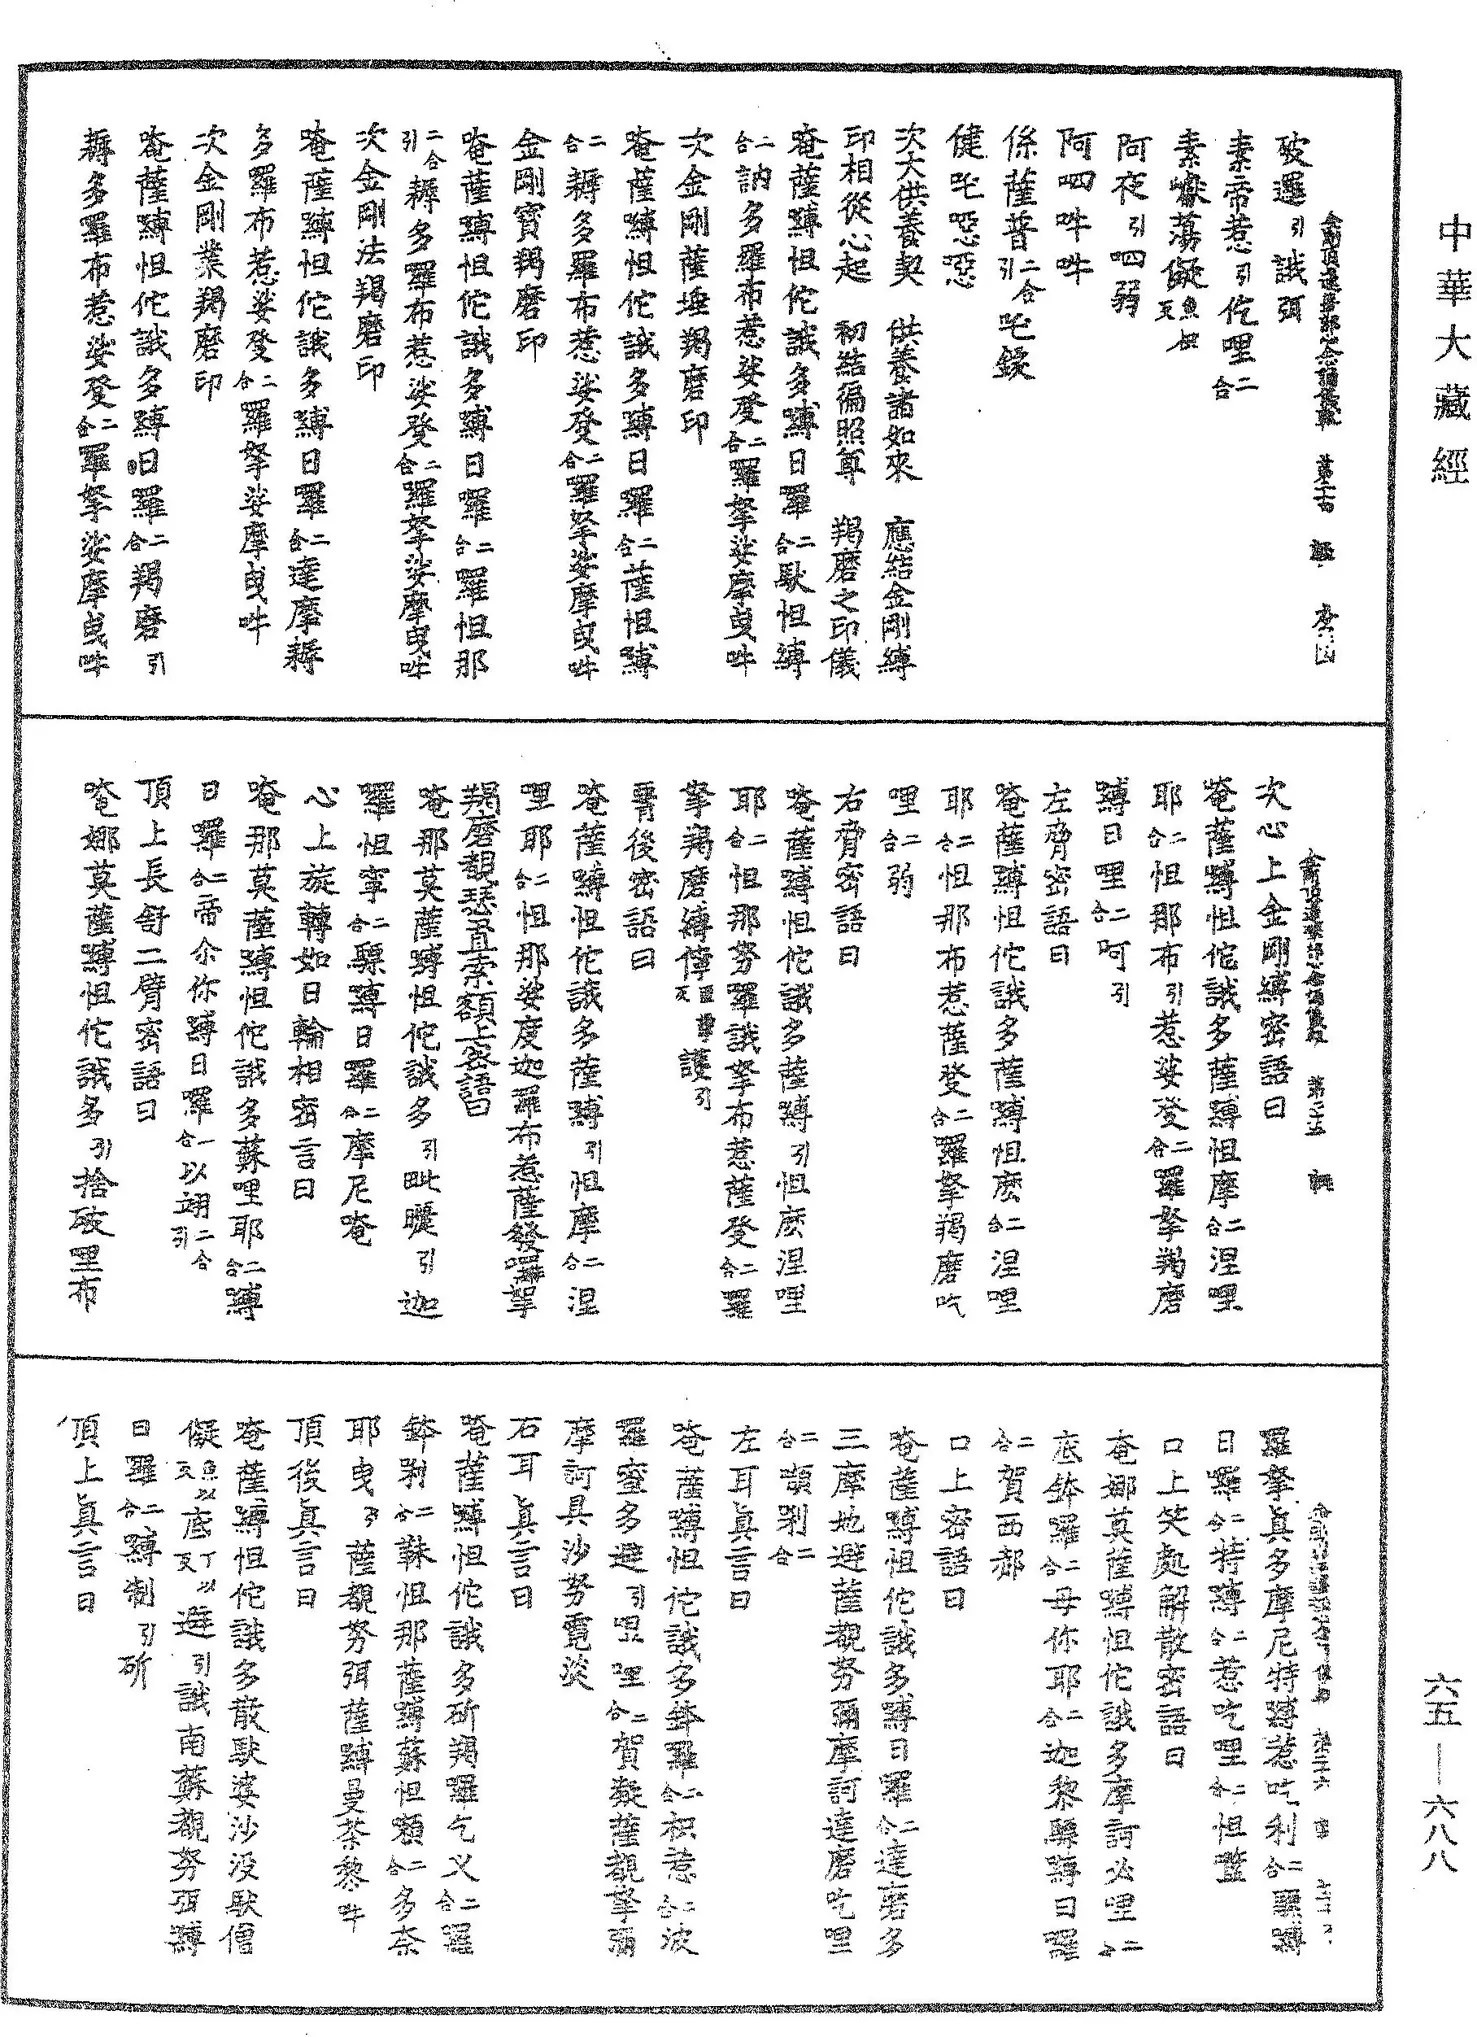 中華大藏經
破邏引誐弭
素帝惹引仡哩二合
素囉蕩儗魚枳反
阿夜引呬弱
阿呬吽吽
係薩普二合引吒鑁
健吒噁噁
次大供養契　供養諸如來　應結金剛縛
印相從心起　初結徧照尊　羯磨之印儀
唵薩嚩怛佗誐多嚩日羅二合馱怛嚩
二合訥多羅布惹娑發二合羅拏娑摩曳吽
次金剛薩埵羯磨印
唵薩嚩怛佗誐多嚩日羅二合薩怛嚩
二合耨多羅布惹娑發二合羅拏娑摩曳吽
金剛寶羯磨印
唵薩嚩怛佗誐多嚩日羅二合羅怛那
二合引耨多羅布惹娑發二合羅拏娑摩曳吽
次金剛法羯磨印
唵薩嚩怛佗誐多嚩日羅二合達摩耨
多羅布惹娑發二合羅拏娑摩曳吽
次金剛業羯磨印
唵薩嚩怛佗誐多嚩日羅二合羯磨引
耨多羅布惹娑發二合羅拏娑摩曳吽
次心上金剛縛密語曰
唵薩嚩怛佗誐多薩嚩怛摩二合涅哩
耶二合怛那布引惹娑發二合羅拏羯磨
嚩日哩二合呵引
左脅密語曰
唵薩嚩怛佗誐多薩嚩怛麽二合涅哩
耶二合怛那布惹薩發二合羅拏羯磨吃
哩二合弱
右脅密語曰
唵薩嚩怛佗誐多薩嚩引怛麽涅哩
耶二合怛那努羅誐拏布惹薩發二合羅
拏羯磨嚩儜反護引
臀後密語曰
唵薩嚩怛佗誐多薩嚩引怛摩二合涅
哩耶二合怛那娑度迦羅布惹薩發羅拏
羯磨覩瑟置索額上密語曰
唵那莫薩嚩怛佗誐多引毗曬引迦
羅怛寧二合驃嚩日羅二合摩尼唵
心上旋轉如日輪相密言曰
唵那莫薩嚩怛佗誐多蘇哩耶二合嚩
日羅二合帝尒你嚩日囉一合以翊二合引
頂上長舒二臂密語曰
唵娜莫薩嚩怛佗誐多引捨破里布
羅拏真多摩尼特嚩惹吃利二合驃嚩
日羅二合特嚩二合惹吃哩二合怛㘕
口上笑處解散密語曰
唵娜莫薩嚩怛佗誐多摩訶必哩二合
底鉢羅二合母你耶二合迦黎驃嚩日囉
二合賀西郝
口上密語曰
唵薩嚩怛佗誐多嚩日羅二合達磨多
三摩地避薩覩努彌摩訶達磨吃哩
二合頡剎二合
左耳真言曰
唵薩嚩怛佗誐多鉢羅二合枳惹二合波
羅蜜多避引哩二合賀㘈薩覩拏彌
摩訶具沙努霓淡
右耳真言曰
唵薩嚩怛佗誐多斫羯羅乞义二合羅
鉢剎二合韎怛那薩嚩蘇怛頞二合多奈
耶曳引薩覩努弭薩嚩曼荼黎吽
頂後真言曰
唵薩嚩怛佗誐多散馱婆沙没馱僧
儗魚以反底丁以反避引誐南蘇覩努弭嚩
日羅二合嚩制引斫
頂上真言曰
六五—六八八